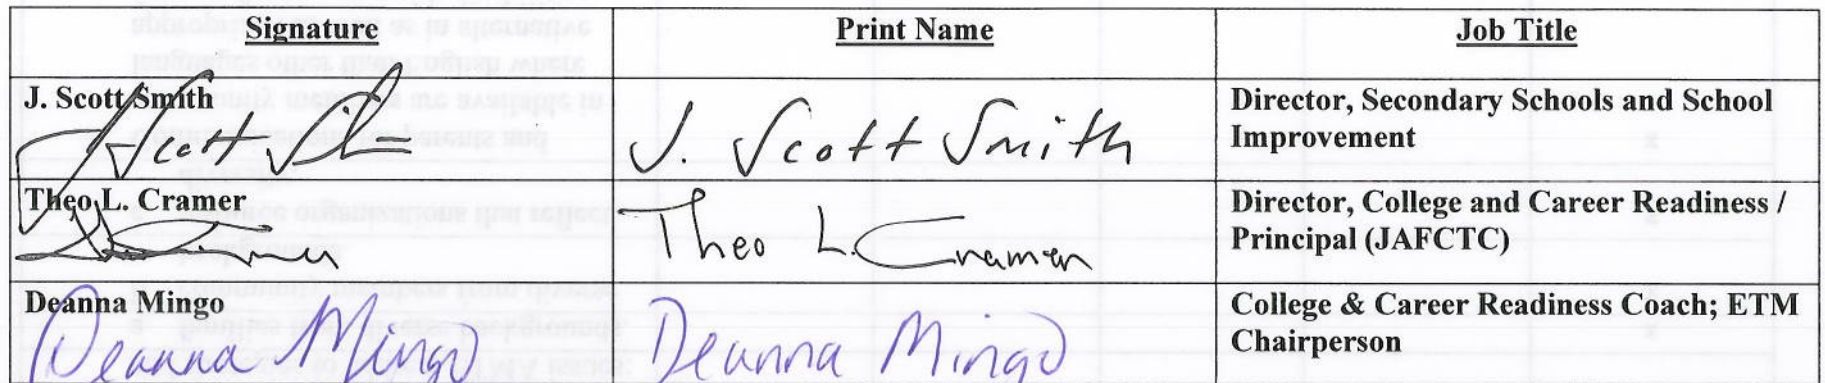 Signature Print Name Job Title
J. Scott Smith
J. Scott Smith
J. Scott Smith
Director, Secondary Schools and School
Improvement
Theo L. Cramer
Theo L. Cramer
Director, College and Career Readiness /
Principal (JAFCTC)
Deanna Mingo
Deanna Mingo
Deanna Mingo
College & Career Readiness Coach; ETM
Chairperson